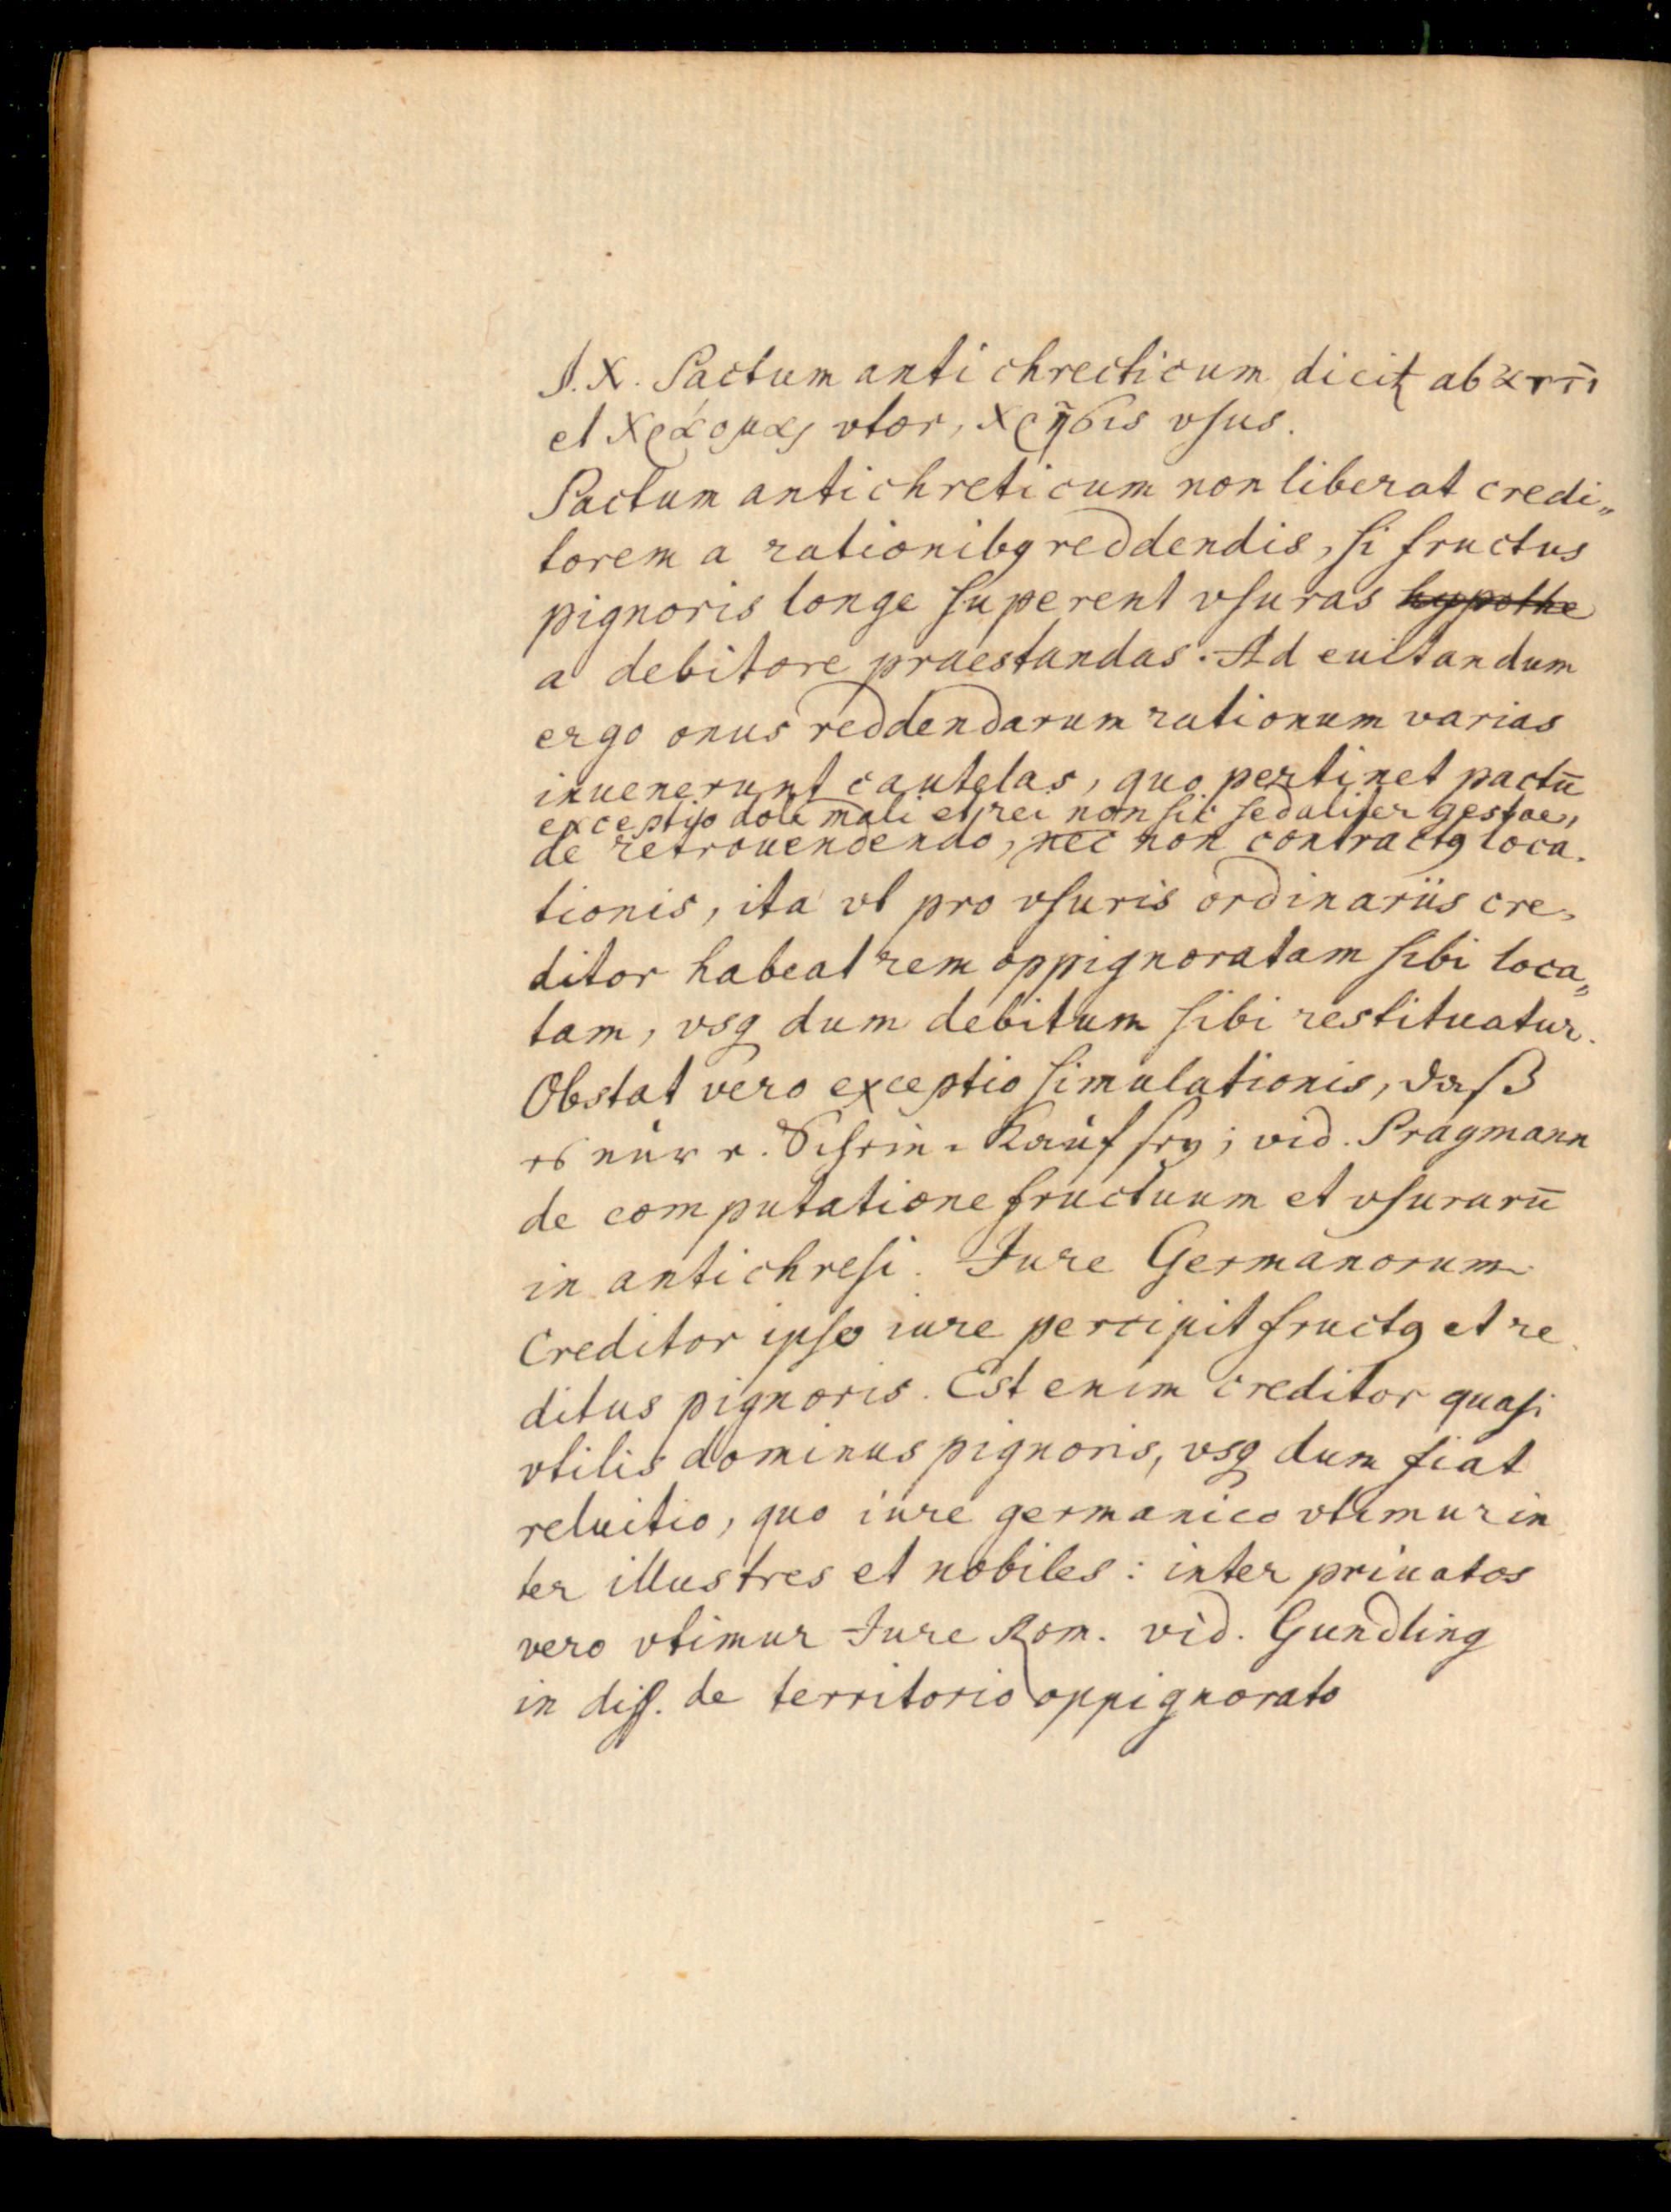 §. X. Pactum antichrecticum dicitꝛ ab ἀντὶ
et χράομαι vtor, χρῆσις vſus.
Pactum antichreticum non liberat credi„
torem a rationibꝰ reddendis, ſi fructus
pignoris longe ſuperent vſuras hypothe
a debitore praestandas. Ad euitandum
ergo onus reddendarum rationum varias
inuenerunt cautelas, quo pertinet pactū
exceptio doli mali et rei non ſic ſed aliter gestae,
de retrouendendo, nec non contractꝰ loca.
tionis, ita vt pro vſuris ordinariis cre„
ditor habeat rem oppignoratam ſibi loca„
tam, vsq dum debitum ſibi restituatur.
Obstat vero exceptio ſimulationis, daß
es nur e. Schein-Kauf sey; vid. Pragmann
de computatione fructuum et vſurarū
in antichreſi. Jure Germanorum
Creditor ipſo iure percipit fructꝰ et re
ditus pignoris. Est enim creditor quaſi
vtilis dominus pignoris, vsq dum fiat
reluitio, quo iure germanico vtimur in
ter illustres et nobiles: inter priuatos
vero vtimur Jure Rom. vid. Gundling
in diſſ. de territorio oppignorato